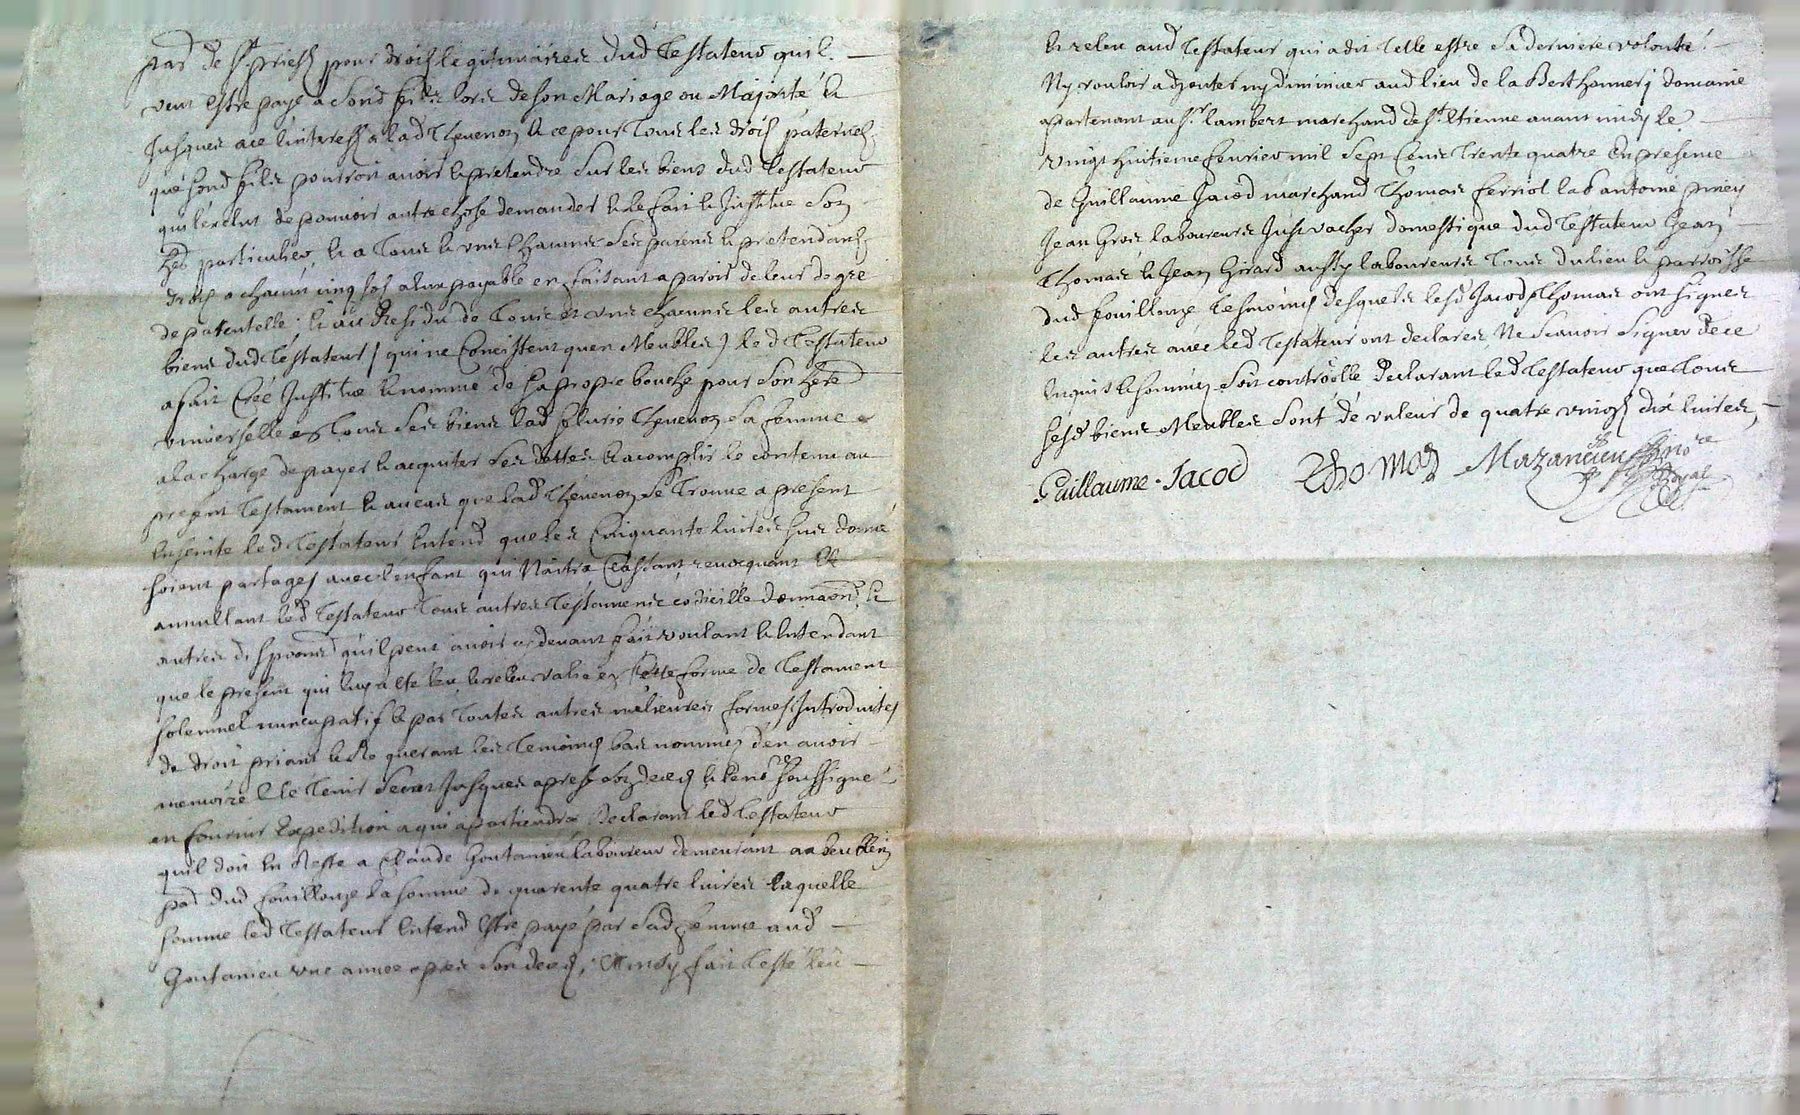 par de St priest pour droits legitimaires dud Testateur quil
veut estre payé a sond fils lors de son Mariage ou Majorité &
Jusques a ce linterest a lad Thevenon & ce pour Tous les droits paternels
que sond fils pourroit avoir & pretendre sur les biens dud Testateur
quil exclut de pouvoir autre chose demander & le fait & Institue son
her particulier, & a Tous & uns chacuns ses parens & pretendants
droits a chacun cinq sols a eux payable en faisant aparoir de leur degre
de parentelle; & au Residu de Tous et uns chacuns les autres
biens dud Testateur (qui ne Concistent quen Meubles) led Testateur
a fait Créé Institue & nomme de sa propre bouche pour son here
universelle en Tous ses biens lad fleurie Thevenon sa femme
a la charge de payer & acquiter ses dettes & acomplir le contenu au
present Testament & au cas que lad Thevenon se Trouve a present
Enseinte led Testateur Entend que les Cinquante livres sus donné
soient partages avec lenfant qui Naitra Cassant, revocquant Et
annullant led Testateur Tous autres Testamens codicille donnaons &
autres disposons quil peut avoir cy devant fait voulant & Entendant
que le present qui luy a esté leu & releu valie en Cette forme de Testament
solemnel nuncupatif & par Toutes autres melieures formes Introduites
de droit priant & Requerant les Temoins bas nommez den avoir
memoire & le Tenir secret Jusques apres son deces & led no re soussigné
en fournir Expedition a qui apartiendra Declarant led Testateur
quil doit En Reste a Claude Goutanieu laboureur demeurant au
par dud fouillouze la somme de quarente quatre livres laquelle
somme led Testateur Entend Estre payé par sad femme aud
Goutanieu une année apres son deces, Ainsy fait & esté leu
& releu aud Testateur qui a dit Telle estre sa derniere volonté
Ny vouloir adjouter ny diminuer aud lieu de la Berthonnery domaine
apartenant au sr lambert marchand de St Etienne avant midy le
vingt huitieme fevrier mil sept Cens Trente quatre En presence
de Guillaume Jacod marchand Thomas ferriol lab antoine piney
Jean Gros laboureurs Just vacher domestique dud Testateur Jean
Thomas & Jean Girard aussy laboureurs Tous du lieu & parroisse
dud fouillouze Tesmoins desquels lesd Jacod & Thomas ont signes
les autres avec led Testateur ont declares Ne Scavoir signer de ce
Enquis & sommez soit controolle declarant led Testateur que Tous
sesd biens Meubles sont de valeur de quatre vingt dix livres
Guillaume Jacod Thomas Mazancieu no re Royal